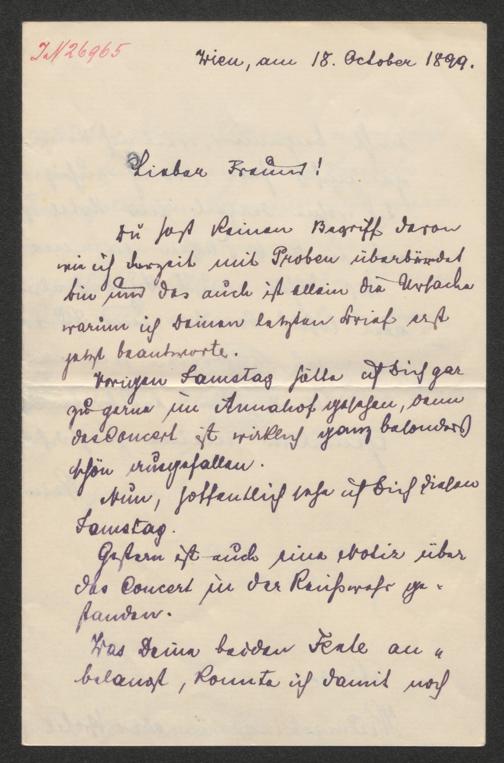 IN 26965
Wien, am 18. October 1899.
Lieber Freund!
Du hast keinen Begriff davon
wie ich derzeit mit Proben überbürdet
bin und das auch ist allein die Ursache
warum ich Deinen letzten Brief erst
jetzt beantworte.
Vorigen Samstag hätte ich Dich gar
zu gerne im Annahof gesehen, denn
das Concert ist wirklich ganz besonders
schön ausgefallen.
Nun, hoffentlich sehe ich Dich diesen
Samstag.
Gestern ist auch eine Notiz über
das Concert in der Reichswehr ge-
standen.
Was Deine beiden Texte an-
belangt, konnte ich damit noch